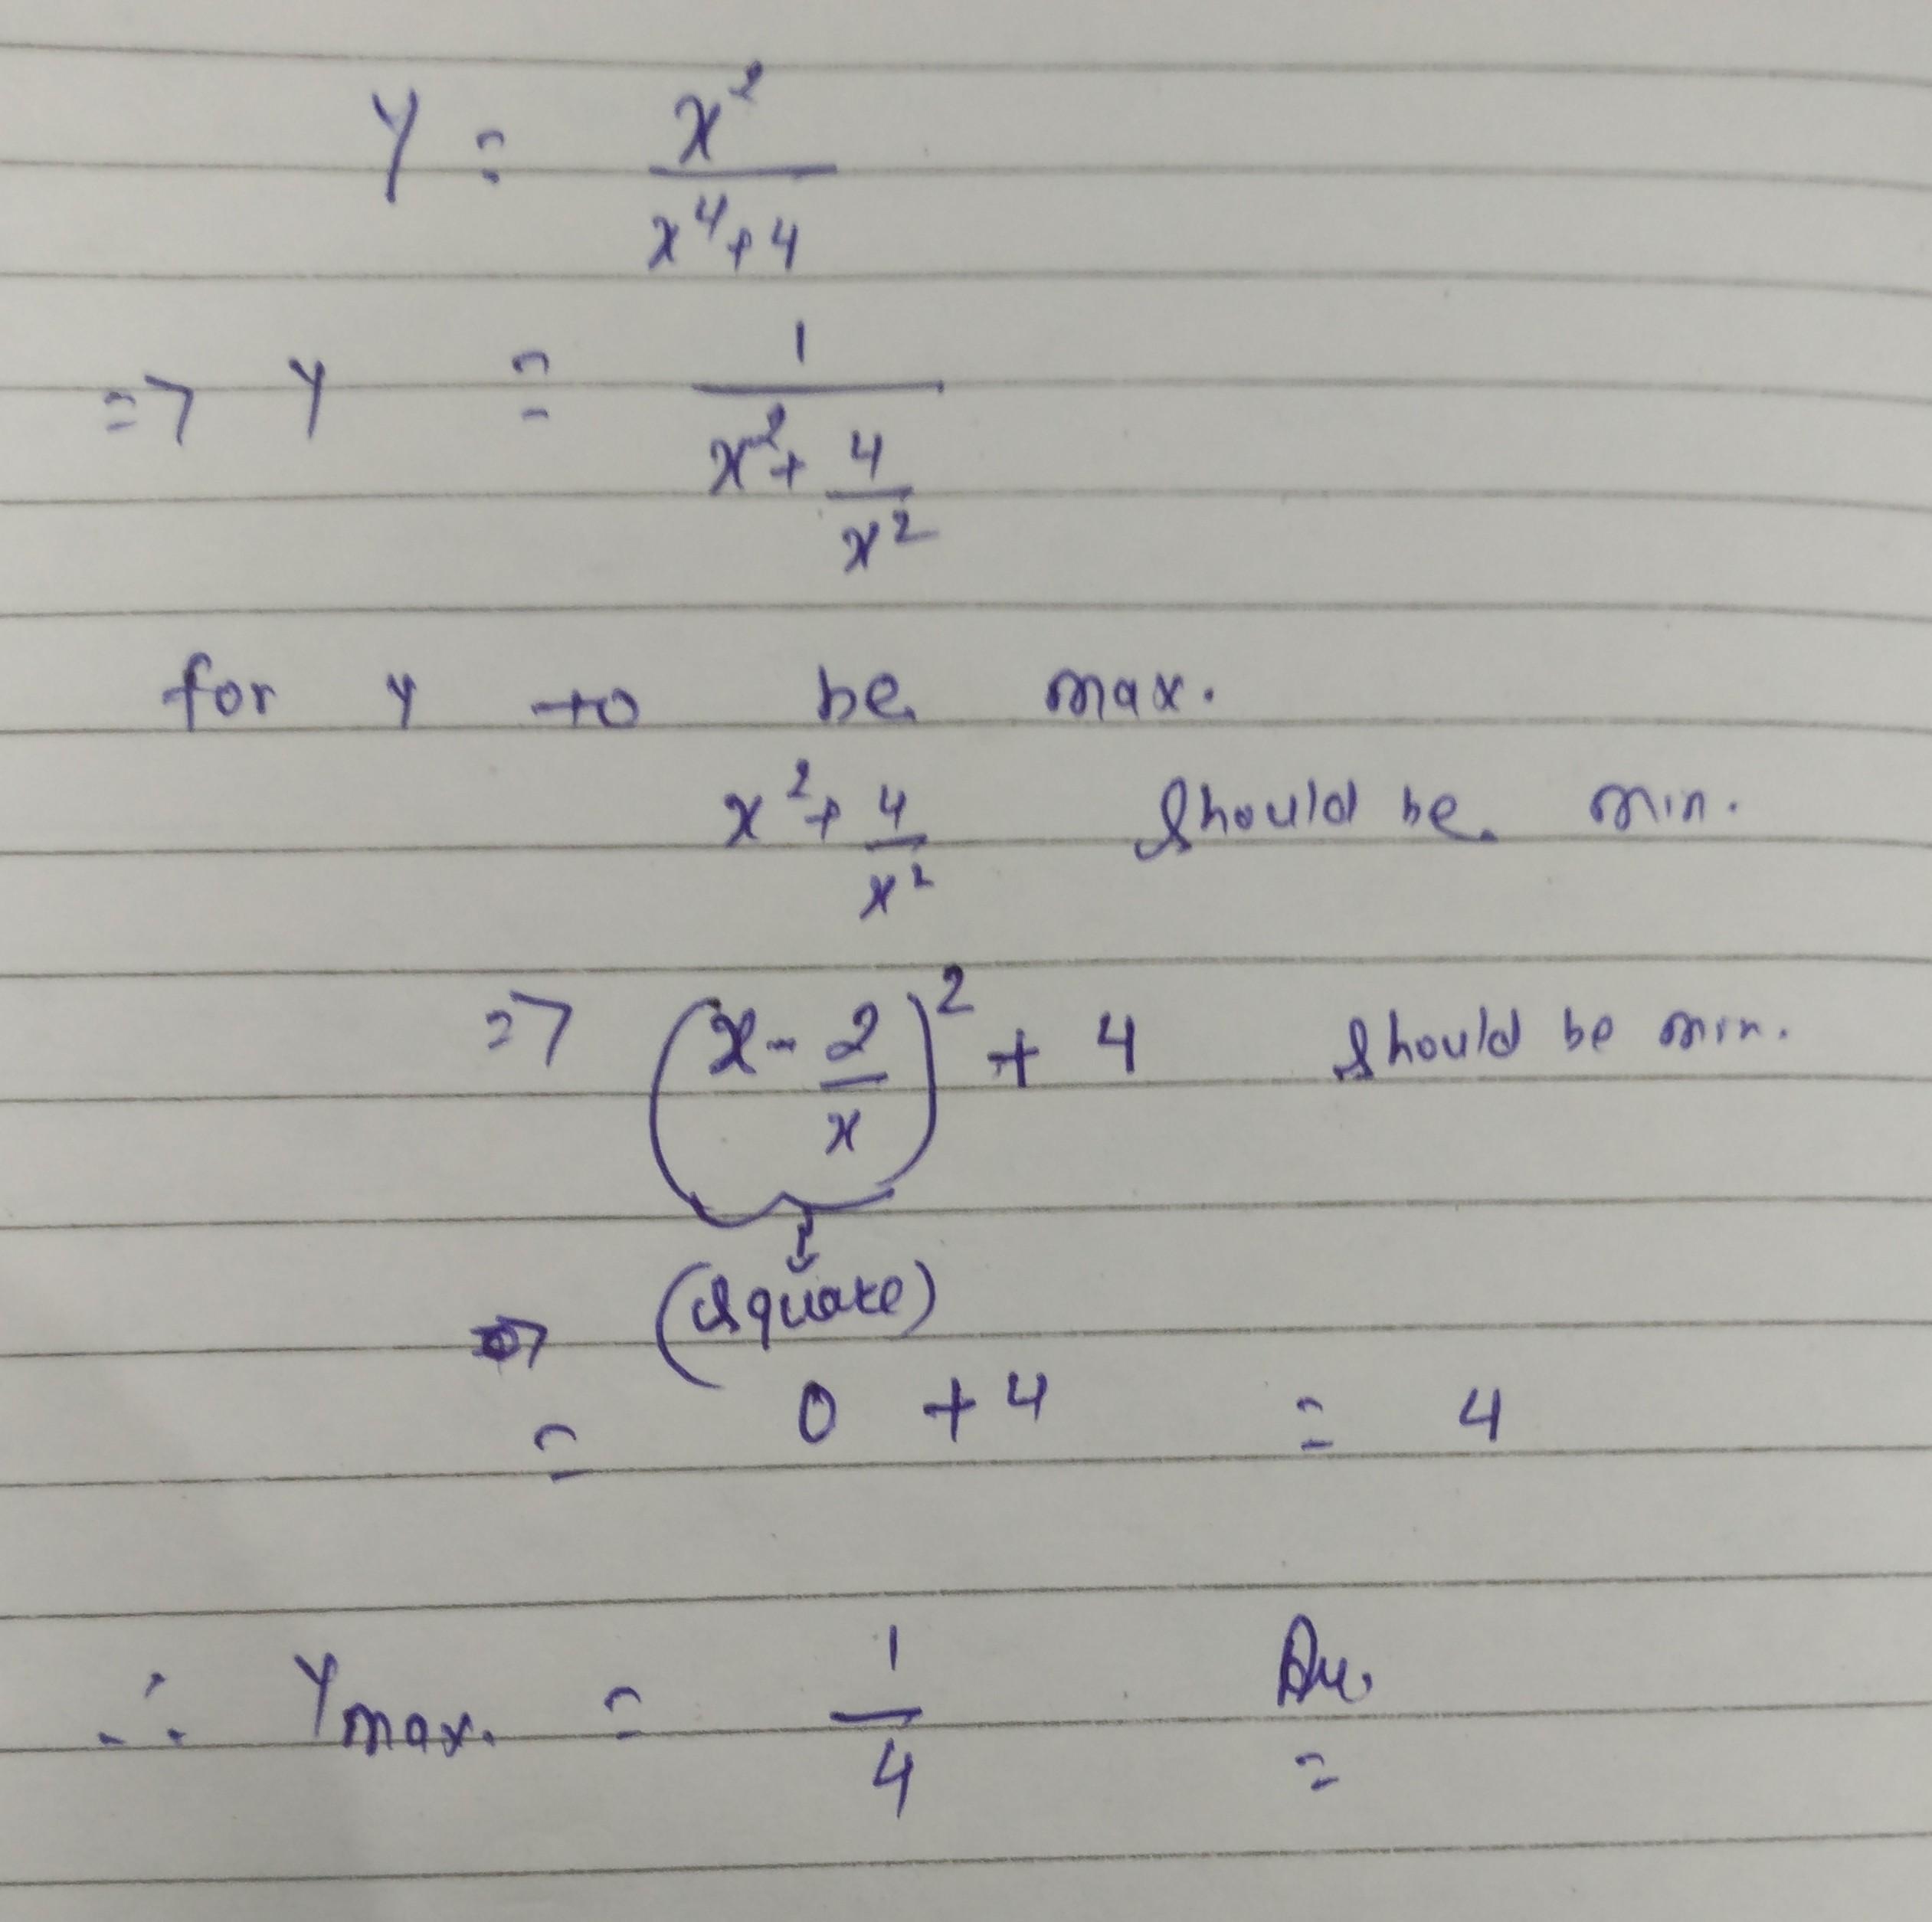 Y = x²/(x⁴+4)
=> Y = 1/(x²+4/x²)
for y to be max.
x²+4/x² should be min.
=> (x-2/x)²+4 should be min.
(square)
= 0+4 = 4
∴ Ymax. = 1/4